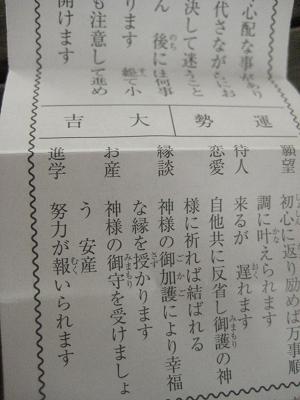 心配な事があり
代さながらにお
決して迷うこと
ん 後には何事
ります 総て小
も注意して進め
開けます
運勢 大吉
願望 初心に返り励めば万事順
調に叶えられます
待人 来るが 遅れます
恋愛 自他共に反省し御護の神
様に祈れば結ばれる
縁談 神様の御加護により幸福
な縁を授かります
お産 神様の御守を受けましょ
う 安産
進学 努力が報いられます